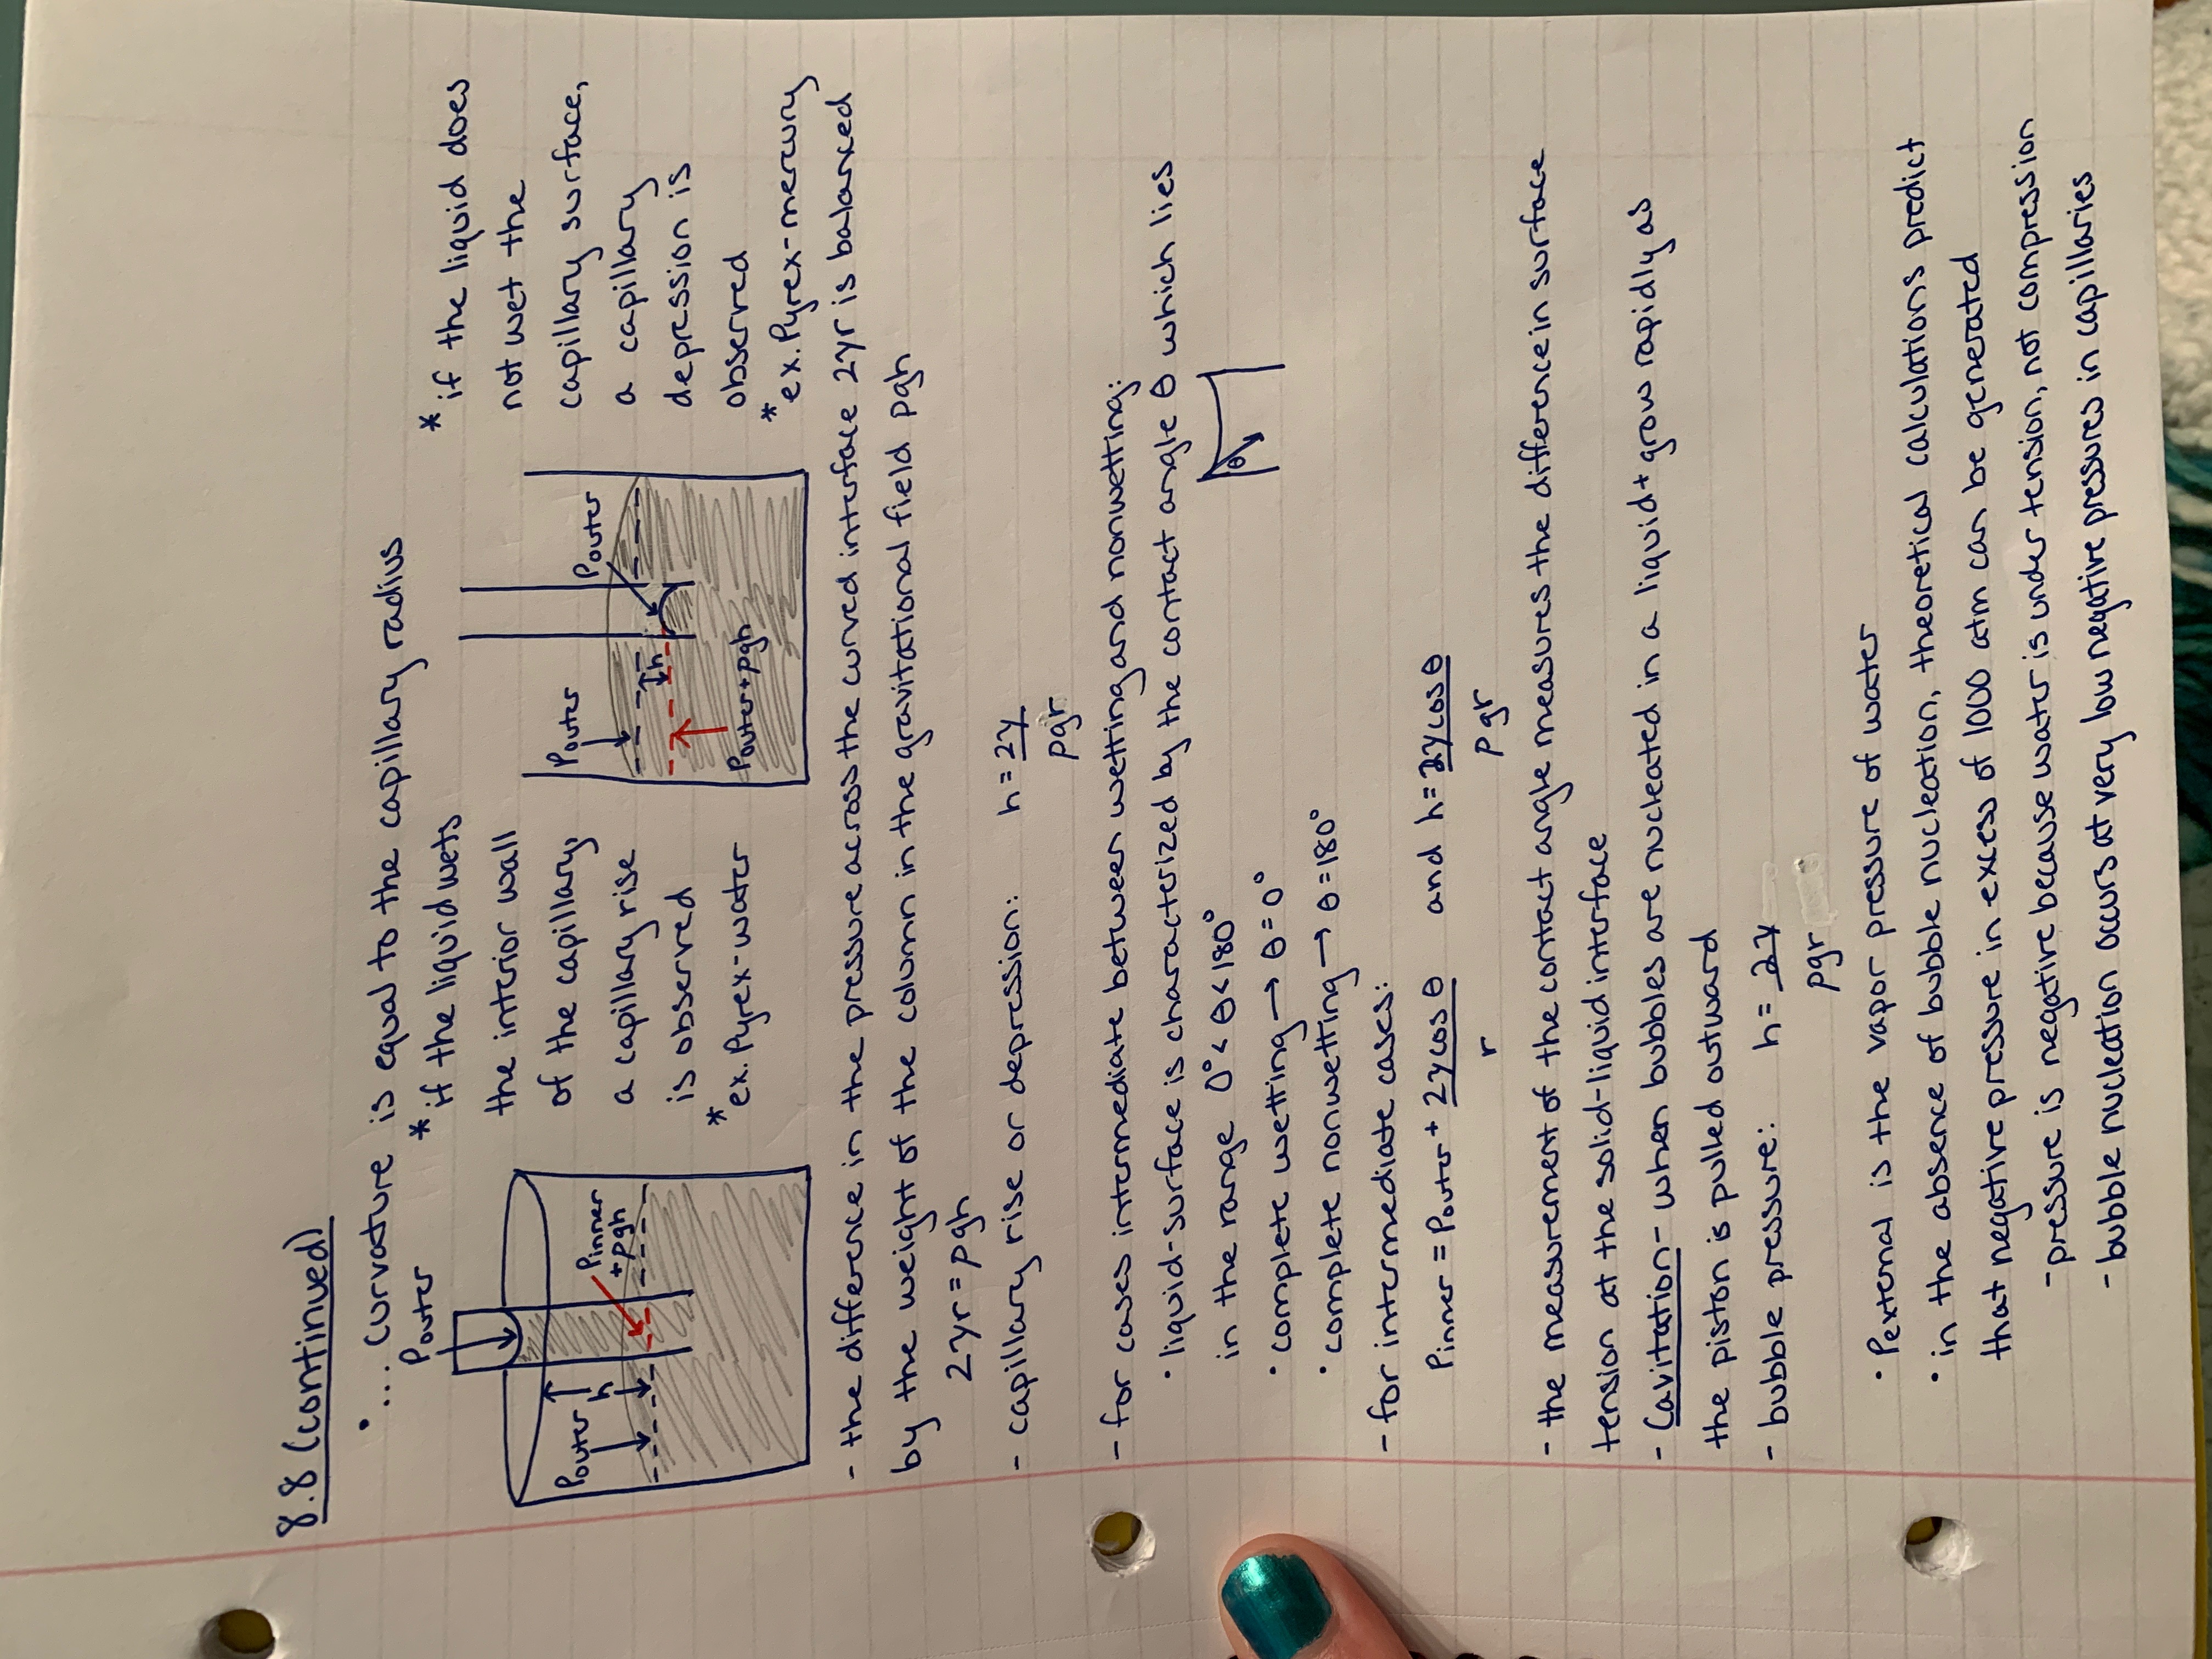 8.8 (continued)
• ... curvature is equal to the capillary radius
Pouter
Pouter
h
Pinner
+ρgh
* if the liquid wets
the interior wall
of the capillary,
a capillary rise
is observed
* ex. Pyrex-water
Pouter
Pouter
h
Pouter+ρgh
* if the liquid does
not wet the
capillary surface,
a capillary
depression is
observed
* ex. Pyrex-mercury
- the difference in the pressure across the curved interface 2γr is balanced
by the weight of the column in the gravitational field ρgh
2γr = ρgh
- capillary rise or depression: h = 2γ
ρgr
- for cases intermediate between wetting and nonwetting:
• liquid-surface is characterized by the contact angle θ which lies
in the range 0° < θ < 180°
θ
• complete wetting → θ = 0°
• complete nonwetting → θ = 180°
- for intermediate cases:
Pinner = Pouter + 2γcos θ and h = 2γcos θ
r ρgr
- the measurement of the contact angle measures the difference in surface
tension at the solid-liquid interface
- Cavitation - when bubbles are nucleated in a liquid + grow rapidly as
the piston is pulled outward
- bubble pressure: h = 2γ
ρgr
• Pexternal is the vapor pressure of water
• in the absence of bubble nucleation, theoretical calculations predict
that negative pressure in excess of 1000 atm can be generated
- pressure is negative because water is under tension, not compression
- bubble nucleation occurs at very low negative pressures in capillaries